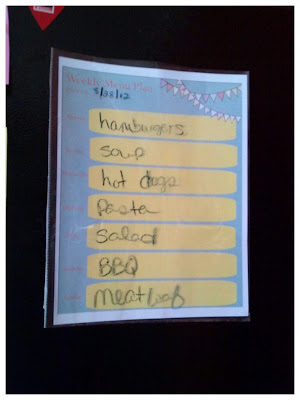 Weekly Menu Plan
5/28/12
hamburgers
soup
hot dogs
Pasta
Salad
BBQ
meatloaf